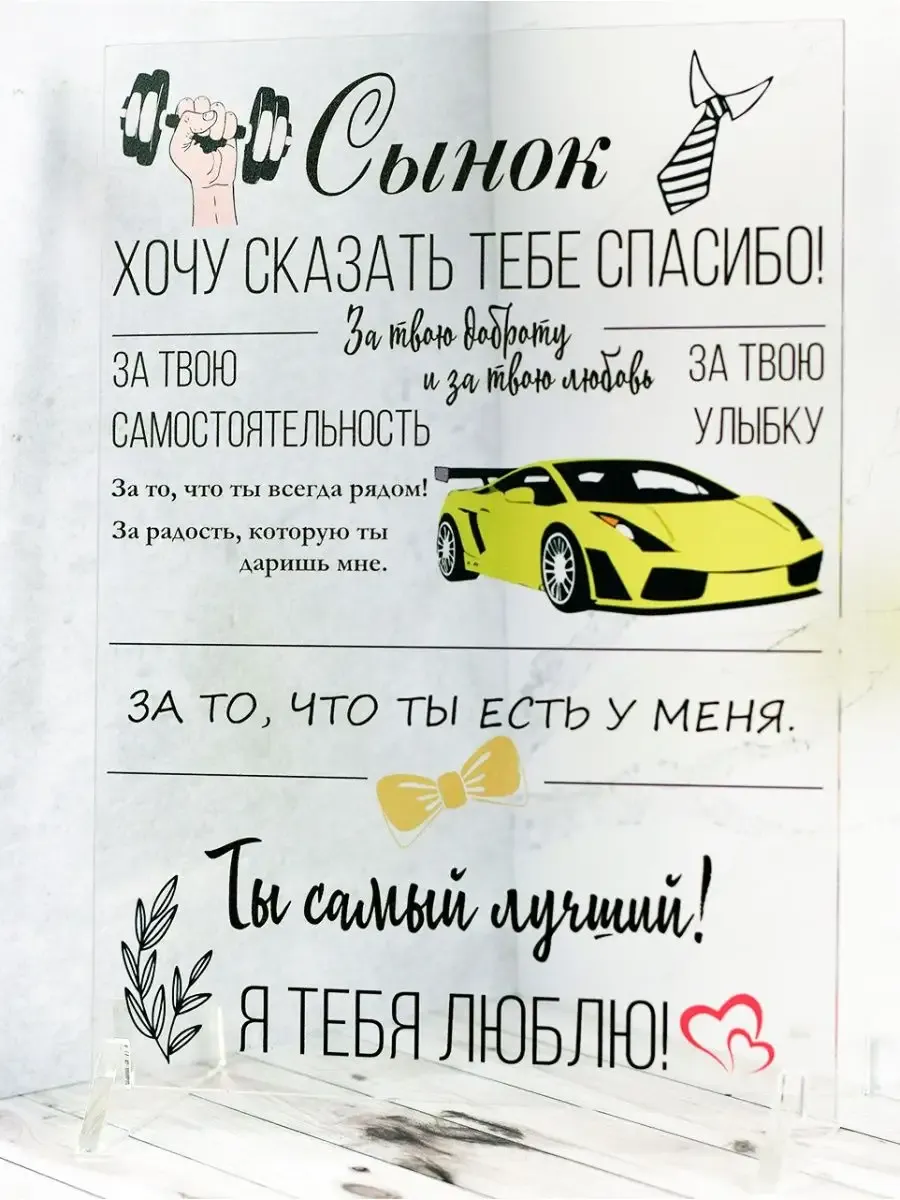 Сынок
ХОЧУ СКАЗАТЬ ТЕБЕ СПАСИБО!
За твою доброту
и за твою любовь
ЗА ТВОЮ
САМОСТОЯТЕЛЬНОСТЬ
ЗА ТВОЮ
УЛЫБКУ
За то, что ты всегда рядом!
За радость, которую ты
даришь мне.
ЗА ТО, ЧТО ТЫ ЕСТЬ У МЕНЯ.
Ты самый лучший!
Я ТЕБЯ ЛЮБЛЮ!